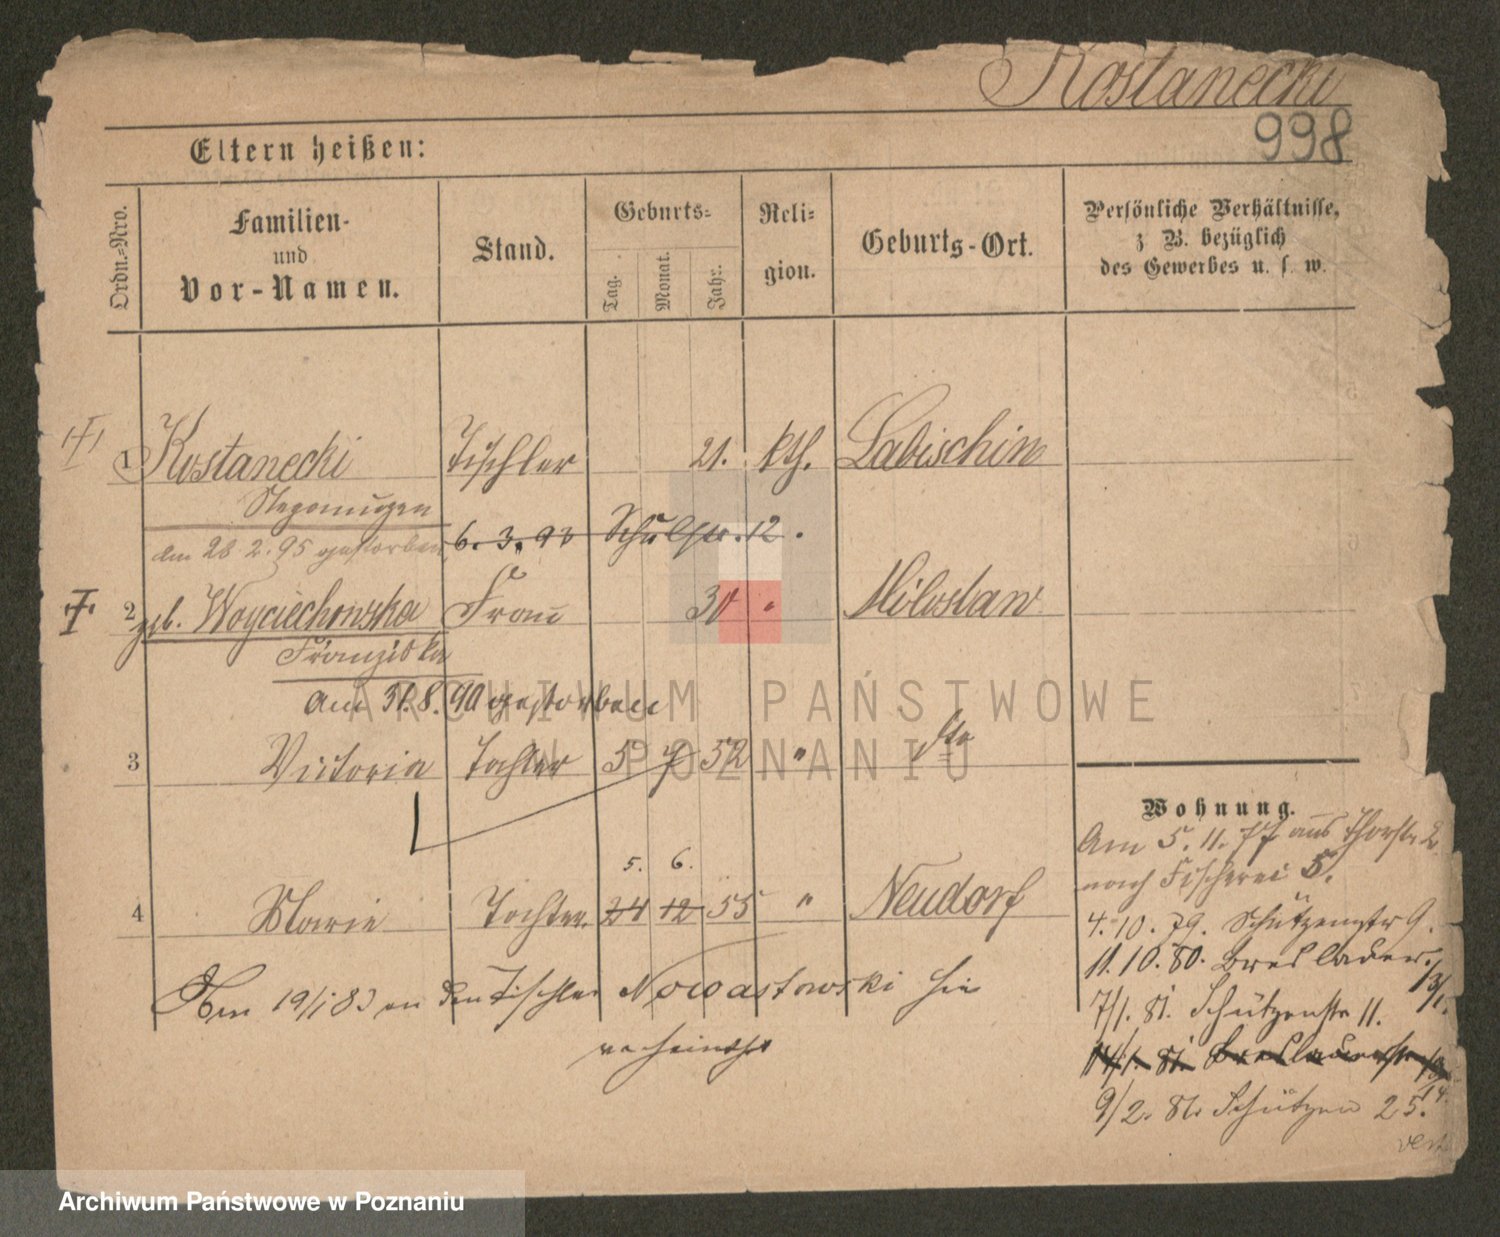 Kostanecki
998
Eltern heißen:
Ordn.=Nro.
Familien-
und
Vor-Namen.
Stand.
Geburts=
Tag.
Monat.
Jahr.
Reli=
gion.
Geburts-Ort.
Persönliche Verhältnisse,
z. B. bezüglich
des Gewerbes u. s. w.
1 Kostanecki Tischler 21. kth. Labischin
Nepomuzen
am 28.2.95 gestorben 6. 3. 93 Schulstr. 12.
2 geb. Woyciechowska Frau 30 " Miloslaw
Franziska
am 31.8.90 gestorben
3 Victoria Tochter 5 7 52 " dto
5. 6.
4 Marie Tochter 24 12 55 " Neudorf
Am 19/1 83 an den Tischler Nowastowski hie
verheirathet
Wohnung.
Am 5.11.77 aus Thorstr. 2
nach Fischerei 5.
4.10.79. Schützenstr 9.
11.10.80. Breslauer
7/1. 81. Schützenstr 11.
14/1. 81. Breslauerstr
9/2. 81. Schützen 25.
ARCHIWUM PAŃSTWOWE
W POZNANIU
Archiwum Państwowe w Poznaniu